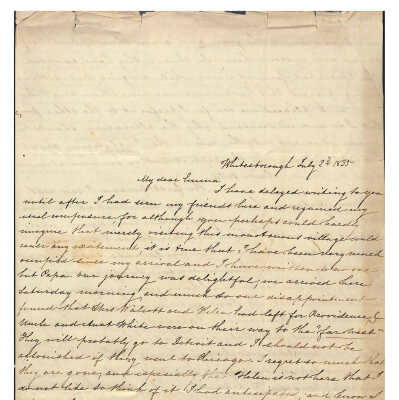 Whitesborough July 2d 1835
My dear Emma
I have delayed writing to you
until after I had seen my friends here and regained my
usual composure for although you perhaps could hardly
imagine that merely visiting this monotonous village could
cause any excitement it is true that I have been very much
occupied since my arrival and I have written to no one
but Papa our journey was delightful; we arrived here
Saturday morning and much to our disappointment
found that Mrs Walcott and Helen had left for Providence, &
Uncle and Aunt White were on their way to the "far West"
They will probably go to Detroit and I should not be
astonished if they went to Chicago. I regret so much that
they are gone, and especially that Helen is not here that I
do not like to think of it I had anticipated, and know I